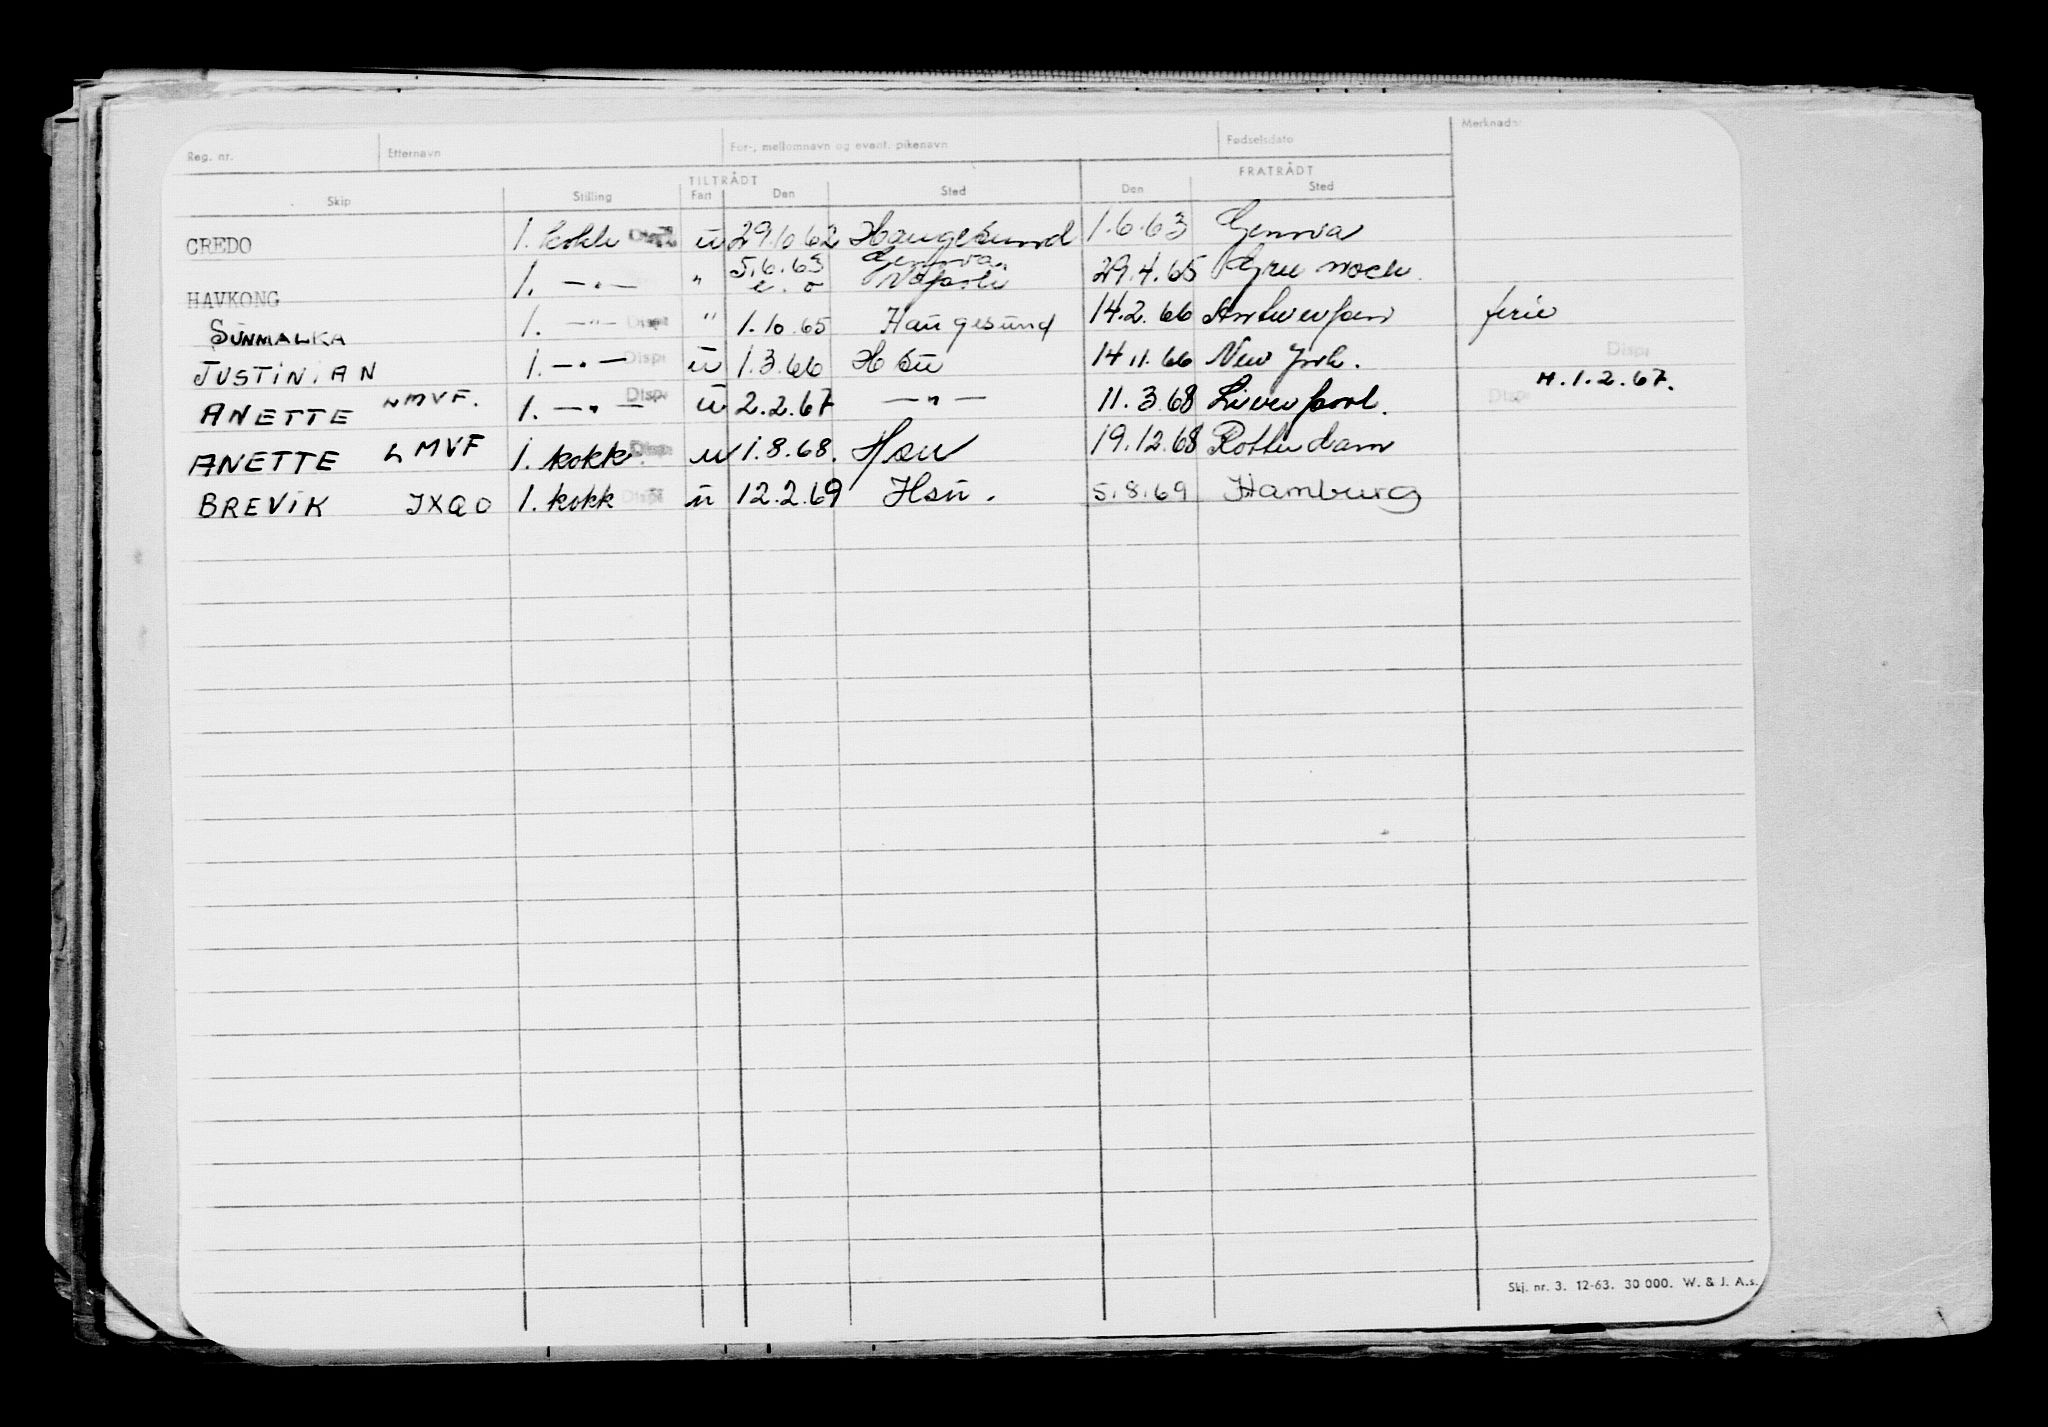 Reg. nr. Etternavn For-, mellomnavn og event. pikenavn Fødselsdato Merknader
TILTRÅDT FRATRÅDT
Skip Stilling Fart Den Sted Den Sted
CREDO 1. kokk Disp. u 29.10.62 Haugesund 1.6.63 Genova
HAVKONG 1. —"— " 5.6.63 Genova 29.4.65 Greenock.
e. o Napoli
SUNMALKA 1. —"— Disp " 1.10.65 Haugesund 14.2.66 Antwerpen ferie
JUSTINIAN 1. —"— Disp u 1.3.66 Hsu 14.11.66 New York. Disp
ANETTE LMVF. 1. —"— Disp u 2.2.67 —"— 11.3.68 Liverpool. Disp H.1.2.67.
ANETTE LMVF 1. kokk Disp u 1.8.68. Hsu 19.12.68 Rotterdam
BREVIK JXQO 1. kokk Disp u 12.2.69 Hsu. 5.8.69 Hamburg
Skj. nr. 3. 12-63. 30 000. W. & J. A.s.